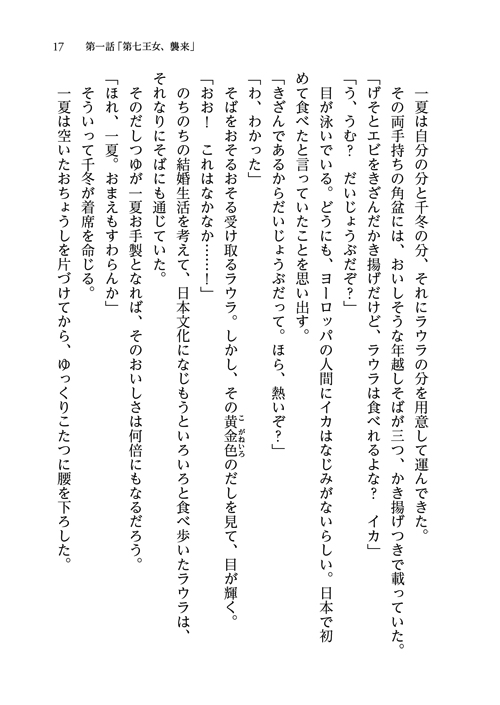 17　第一話「第七王女、襲来」
　一夏は自分の分と千冬の分、それにラウラの分を用意して運んできた。
　その両手持ちの角盆には、おいしそうな年越しそばが三つ、かき揚げつきで載っていた。
「げそとエビをきざんだかき揚げだけど、ラウラは食べれるよな？　イカ」
「う、うむ？　だいじょうぶだぞ？」
　目が泳いでいる。どうにも、ヨーロッパの人間にイカはなじみがないらしい。日本で初
めて食べたと言っていたことを思い出す。
「きざんであるからだいじょうぶだって。ほら、熱いぞ？」
「わ、わかった」
　そばをおそるおそる受け取るラウラ。しかし、その黄金色のだしを見て、目が輝く。
こがねいろ
「おお！　これはなかなか……！」
　のちのちの結婚生活を考えて、日本文化になじもうといろいろと食べ歩いたラウラは、
それなりにそばにも通じていた。
　そのだしつゆが一夏お手製となれば、そのおいしさは何倍にもなるだろう。
「ほれ、一夏。おまえもすわらんか」
　そういって千冬が着席を命じる。
　一夏は空いたおちょうしを片づけてから、ゆっくりこたつに腰を下ろした。